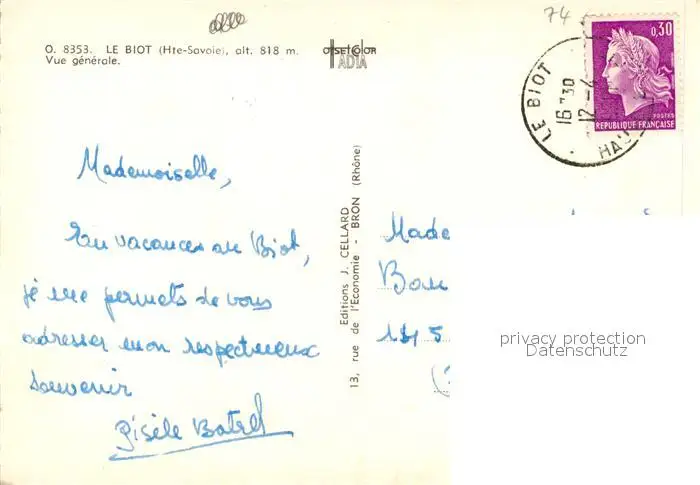 74
O. 8353. LE BIOT (Hte-Savoie), alt. 818 m.
Vue générale.
OFFSET COLOR
ADIA
0,30
POSTES
REPUBLIQUE FRANÇAISE
LE BIOT
16 30
12 - 4
HAU
Mademoiselle,
En vacances au Biot,
je me permets de vous
adresser mon respectueux
souvenir
Gisèle
Editions J. CELLARD
13, rue de l'Economie - BRON (Rhône)
Made
privacy protection
Datenschutz